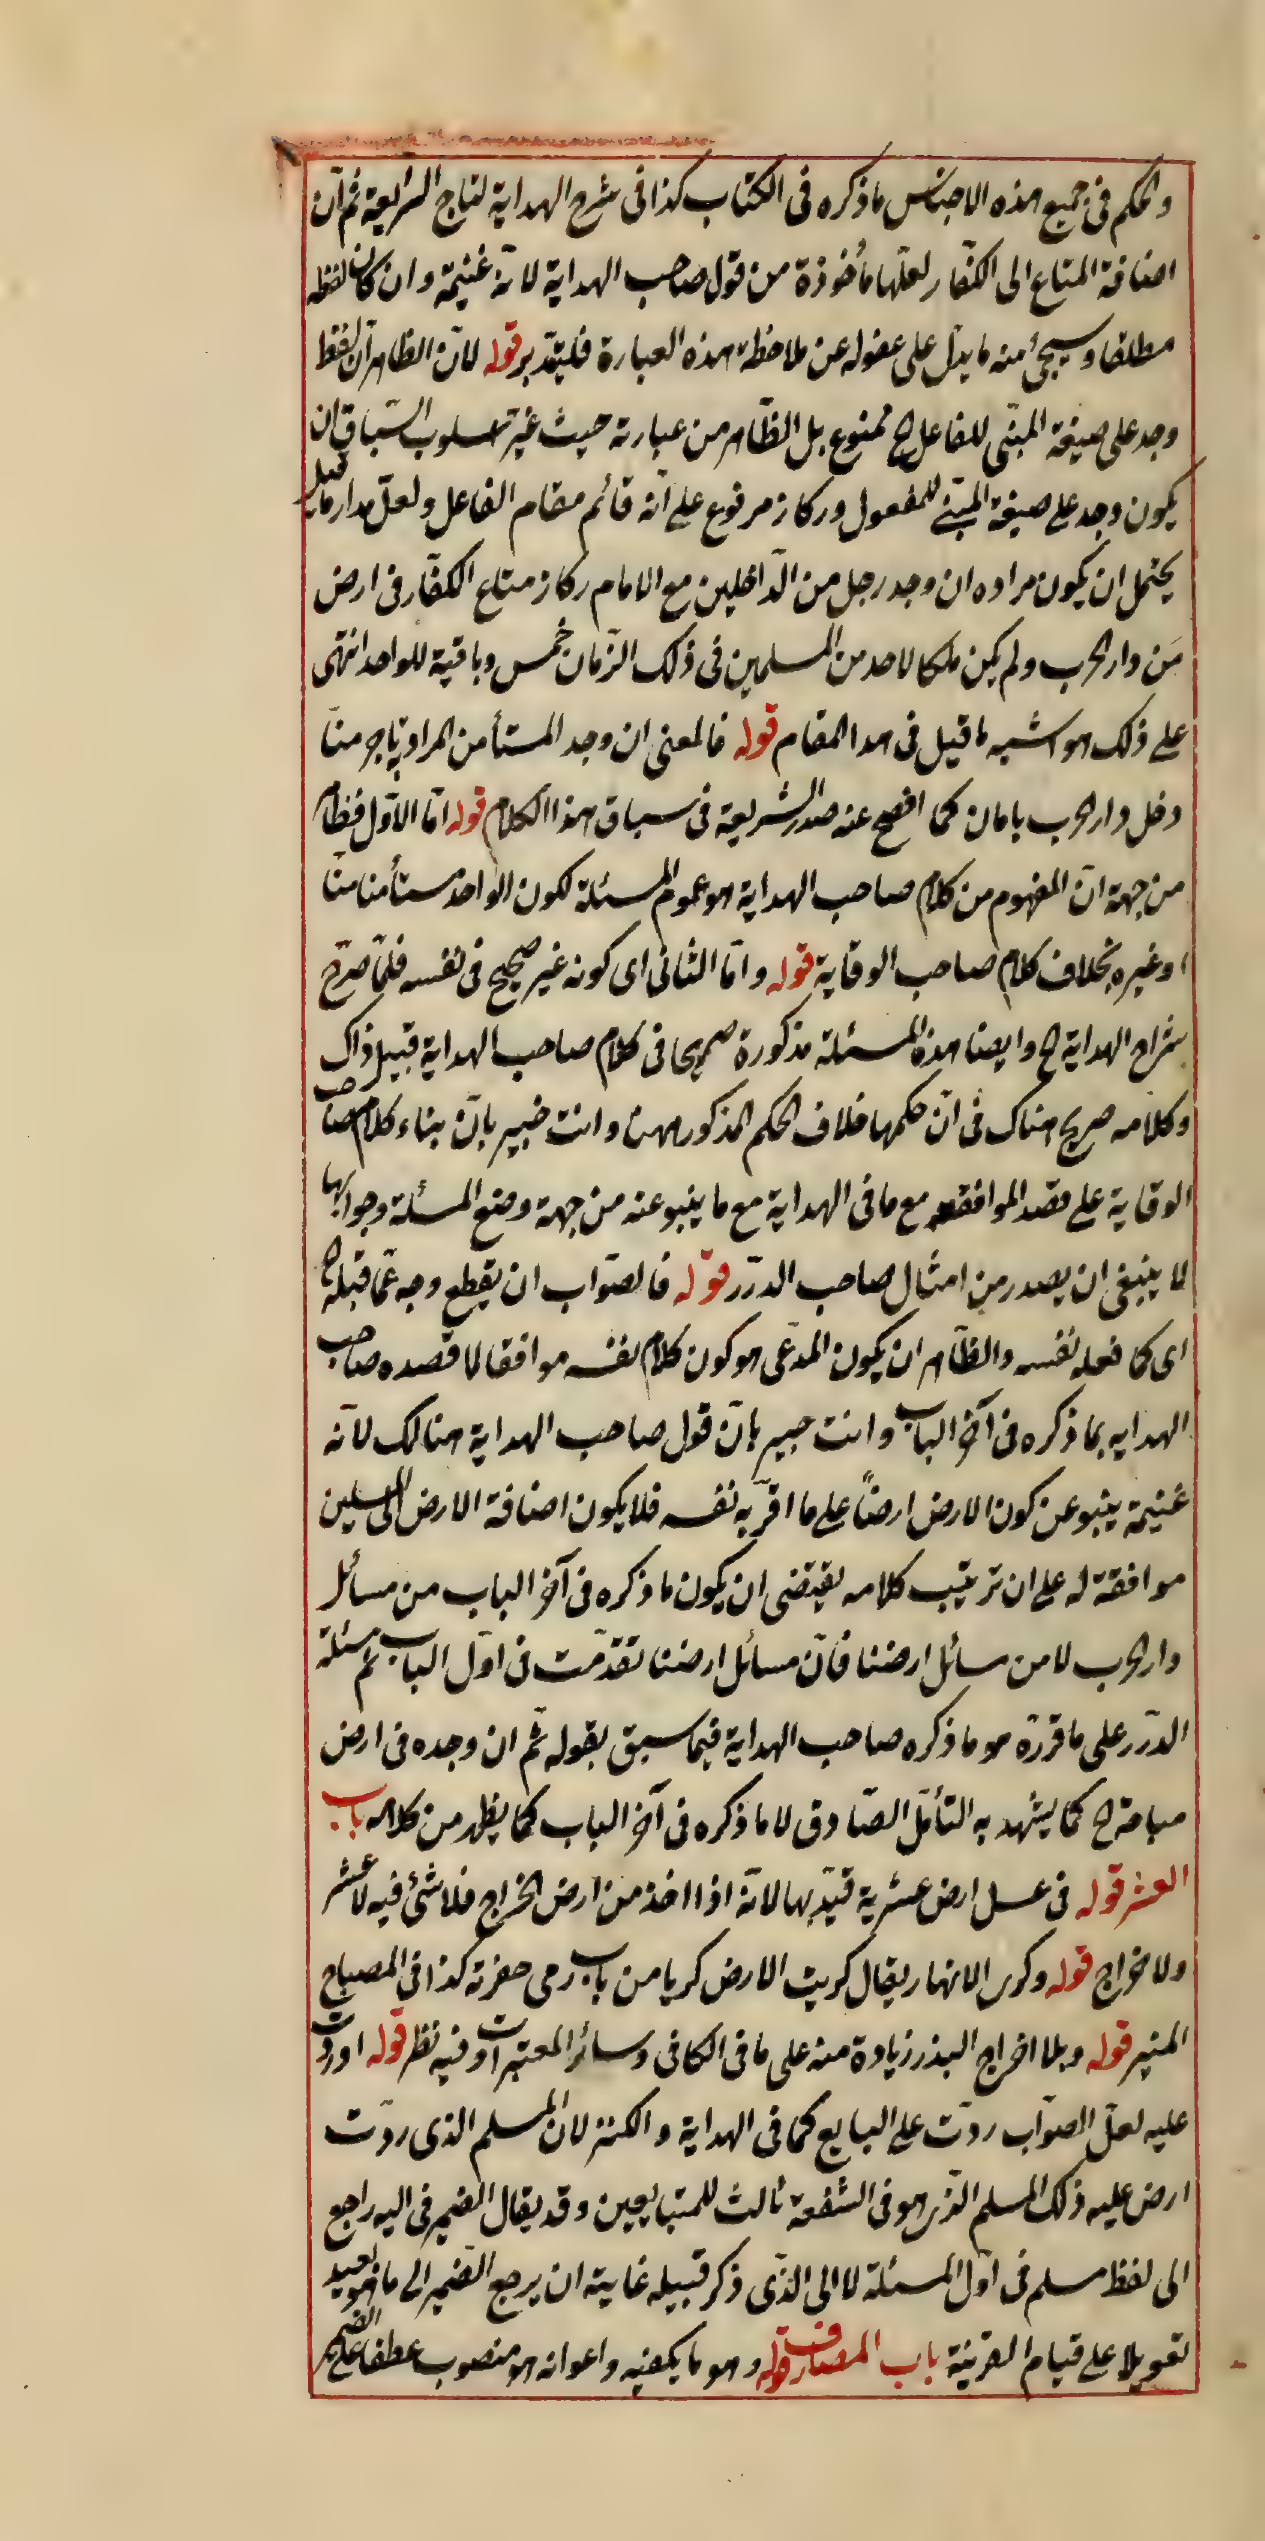 والحكم فى جميع هذه الاجناس ما ذكره فى الكتاب كذا فى شرح الهداية لتاج الشريعة ثم ان
اضافة المتاع الى الكفّار لعلّها مأخوذة من قول صاحب الهداية لانّه غنيمة وان كان لفظه
مطلقا وسيجئ منه ما يدلّ على عفوله عن ملاحظة هذه العبارة فليتدبّر قوله لانّ الظاهر انّ لفظ
وجد على صيغة المبنّى للفاعل الخ ممنوع بل الظّاهر من عبارته حيث غيّر اسلوب السّباق ان
يكون وجد على صيغة المبنّى للمفعول وركاز مرفوع على انّه قائم مقام الفاعل ولعلّ مدار ما قيل
يحتمل ان يكون مراده ان وجد رجل من الدّاخلين مع الامام ركاز متاع الكفّار فى ارض
من دار الحرب ولم يكن ملكا لاحد من المسلمين فى ذلك الزّمان خمس وباقيه للواجد انتهى
على ذلك هو اشبه ما قيل فى هذا المقام قوله فالمعنى ان وجد المستأمن المراد تاجر منّا
دخل دار الحرب بامان كما افصح عنه صدر الشريعة فى سباق هذا الكلام قوله امّا الاوّل فظاهر
من جهة انّ المفهوم من كلام صاحب الهداية هو عموم المسئلة لكون الواجد مستأمنا منّا
او غيره بخلاف كلام صاحب الوقاية قوله وامّا الثانى اى كونه غير صحيح فى نفسه فلمّا صرّح
شراح الهداية الخ وايضا هذه المسئلة مذكورة صريحا فى كلام صاحب الهداية قبيل ذاك
وكلامه صريح هناك فى انّ حكمها خلاف الحكم المذكور ههنا وانت خبير بانّ بناء كلام صاحب
الوقاية على قصد الموافقة مع ما فى الهداية مع ما ينبو عنه من جهة وضع المسئلة وجوابها
لما ينبغى ان يصدر من امثال صاحب الدرر قوله فالصّواب ان يقطع وجه عمّا قبله الخ
اى كما فعله نفسه والظّاهر ان يكون المدّعى هو كون كلام نفسه موافقا لما قصده صاحب
الهدايه بما ذكره فى آخر الباب وانت خبير بانّ قول صاحب الهداية هنالك لانّه
غنيمة ينبو عن كون الارض ارضاً على ما اقرّ به نفسه فلا يكون اضافة الارض الى المسلمين
موافقة له على ان ترتيب كلامه يقتضى ان يكون ما ذكره فى آخر الباب من مسائل
دار الحرب لا من مسائل ارضنا فانّ مسائل ارضنا تقدّمت فى اوّل الباب ثم مسئلة
الدّرر على ما قررّه هو ما ذكره صاحب الهداية فيما سبق بقوله ثمّ ان وجده فى ارض
مباحة الخ كما يشهد به التأمّل الصّادق لا ما ذكره فى آخر الباب كما يظهر من كلامه باب
العشر قوله فى عسل ارض عشرية قيّد بها لانّه اذا اخذ من ارض الخراج فلا شئ فيه لا عشر
ولا خراج قوله وكرى الانهار يقال كريت الارض كريا من باب رمى حفرته كذا فى المصباح
المنير قوله وبلا اخراج البذر زيادة منه على ما فى الكافى وسائر المعتبرات وفيه نظر قوله او ردّت
عليه لعلّ الصوّاب ردّت على البايع كما فى الهداية والكنز لان المسلم الذى ردّت
ارض عليه ذلك المسلم الذّى هو فى الشّفعة ثالث للمتبايعين وقد يقال الضمير فى اليه راجع
الى لفظ مسلم فى اوّل المسئلة لا الى الذّى ذكر قبيله غايته ان يرجع الضمير الى ما هو بعيد
تعويلا على قيام القرينة باب المصارف قوله وهو ما يكفيه واعوانه هو منصوب عطفا على الضمير